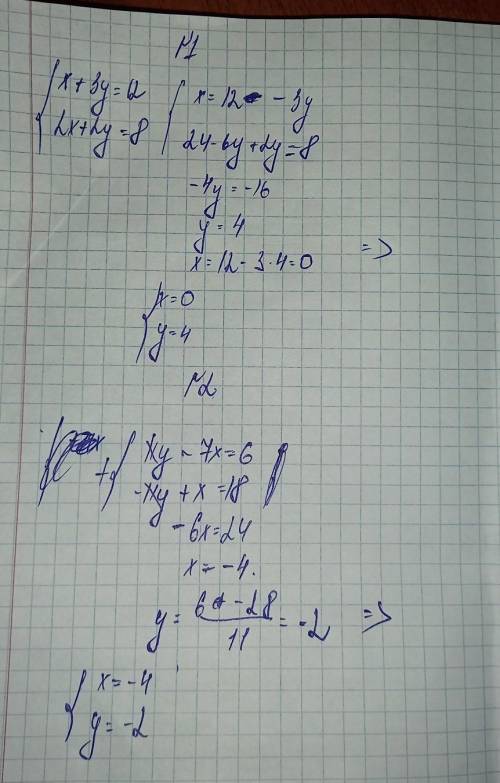 №1
x+3y=12
2x+2y=8
x=12 -3y
24-6y+2y=8
-4y=-16
y=4
x=12-3·4=0 =>
x=0
y=4
№2
+ 11y-7x=6
-11y+x=18
-6x=24
x=-4.
y= 6 -28 / 11 =-2 =>
x=-4
y=-2